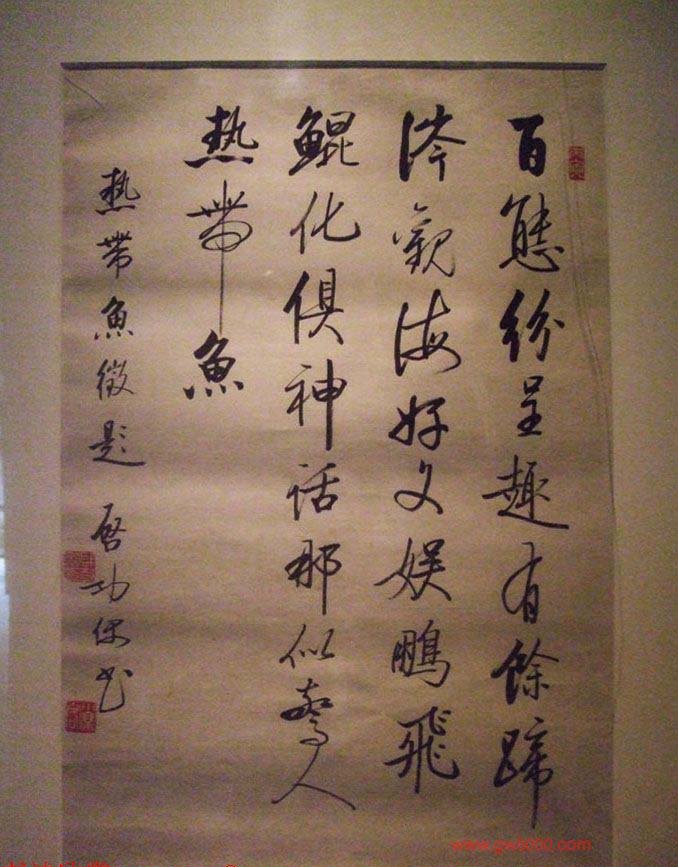 百態紛呈趣有餘蹄
涔觀海好文娱鵬飛
鯤化俱神話那似驚人
熱帶魚
熱帶魚徵題 啓功